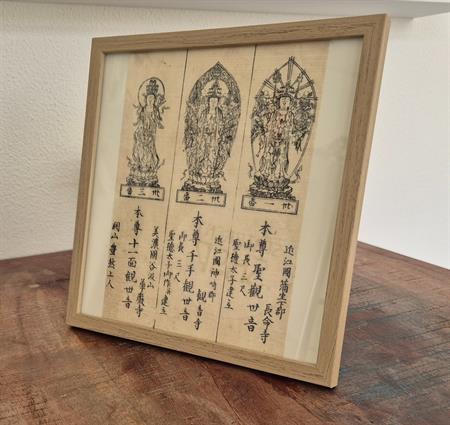 卅一番
近江國蒲生郡
長命寺
本尊聖觀世音
御長三尺
聖德太子建立
卅二番
近江國神崎郡
觀音寺
本尊千手觀世音
御長三尺
聖德太子御作並建立
卅三番
美濃國谷汲山
華嚴寺
本尊十一面觀世音
開山豊然上人